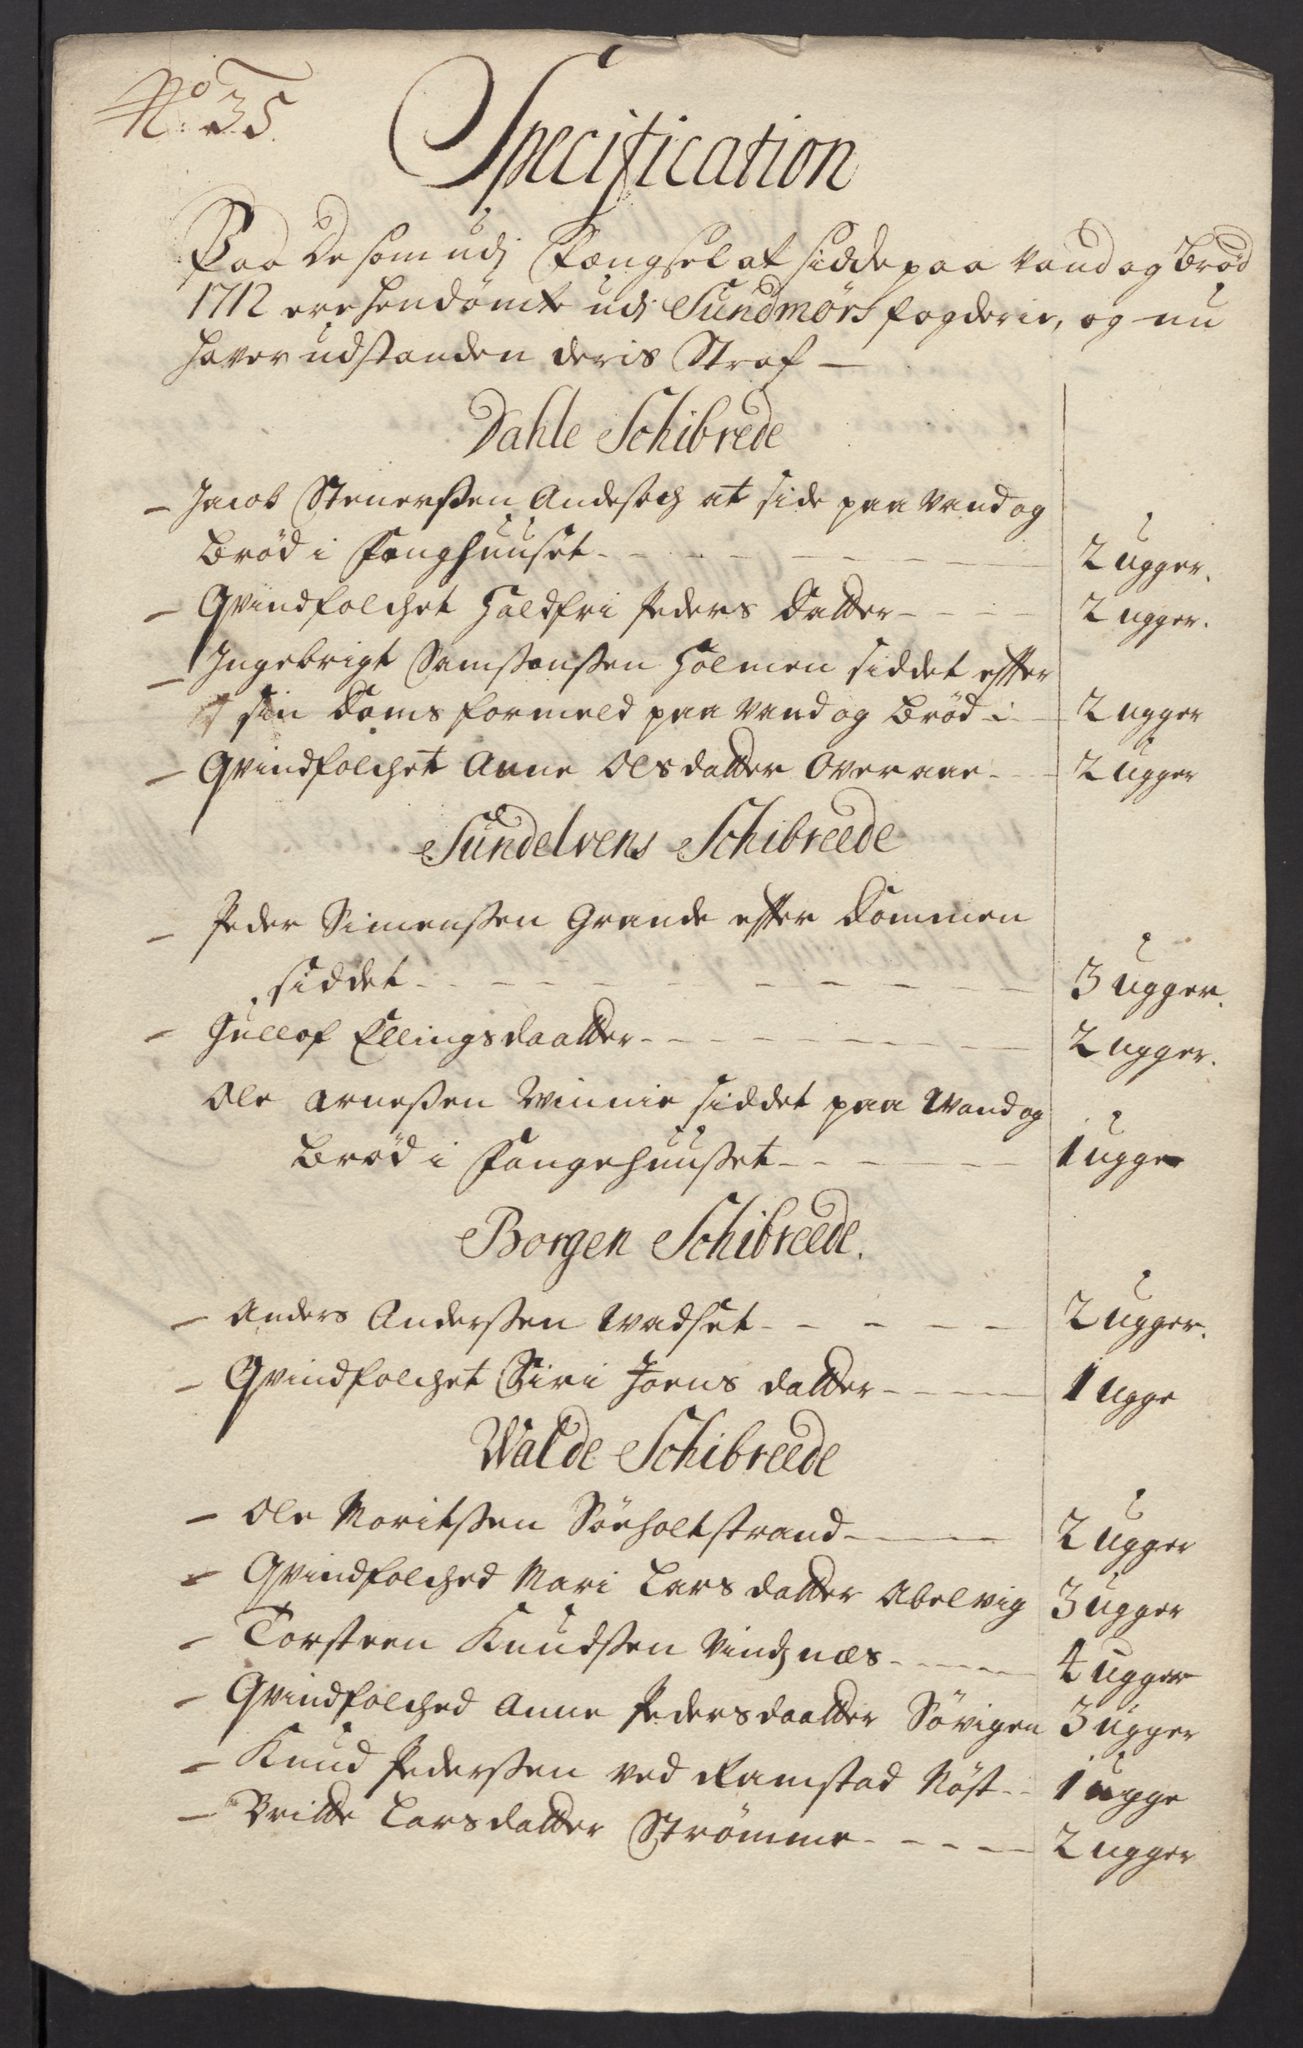 No: 35.
Specification
Paa De som udj Fængsel at sidde paa Vand og Brød
1712 ere hendømte udj Sundmørs fogderie, og nu
haver udstanden deris Straf —
Dahle Schibrede
— Jacob Stenerssen at side paa Vand og
Brød i Fanghuuset - - - 2 ugger.
— Qvindfolchet Haldfri Peders Datter - - - 2 ugger.
— Ingebrigt Samsonssen Holmen siddet effter
sin Doms formeld paa Vand og Brød i - - 2 ugger
— Qvindfolchet Anne Olsdatter Overaae - - - 2 ugger
Sundelvens Schibreede
— Peder Simenssen Grande effter Dommen
siddet - - - 3 ugger.
— Gullof Ellingsdaatter - - - 2 ugger.
Ole Arnessen Winnie siddet paa Wand og
Brød i Fangehuusset - - - 1 ugge
Borgen Schibreede.
— Anders Anderssen Wadset - - - 2 ugger.
— Qvindfolchet Siri Joens datter - - - 1 ugge
Walde Schibreede
— Ole Moritssen Söeholtstrand - - - 2 ugger
— Qvindfolched Mari Lars datter Abelvig 3 ugger
— Torsteen Knudssen Vindznæs - - - 4 ugger
— Qvindfolched Anne Pedersdaatter Sövigen 3 ugger
— Knud Pederssen ved Ramstad Nöst - - 1 ugge
— Britte Larsdatter Strømme - - - 2 ugger